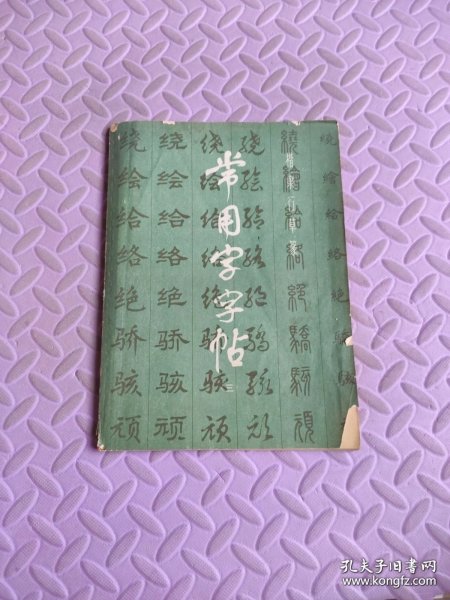 常用字字帖
三
绕 绘 给 络 绝 骄 骇 顽
绕 绘 给 络 绝 骄 骇 顽
绕 绘 给 络 绝 骄 骇 顽
绕 绘 给 络 绝 骄 骇 顽
繞 繪 給 絡 絕 驕 駭 頑
绕 繪 给 络 绝
孔夫子旧书网
www.kongfz.com